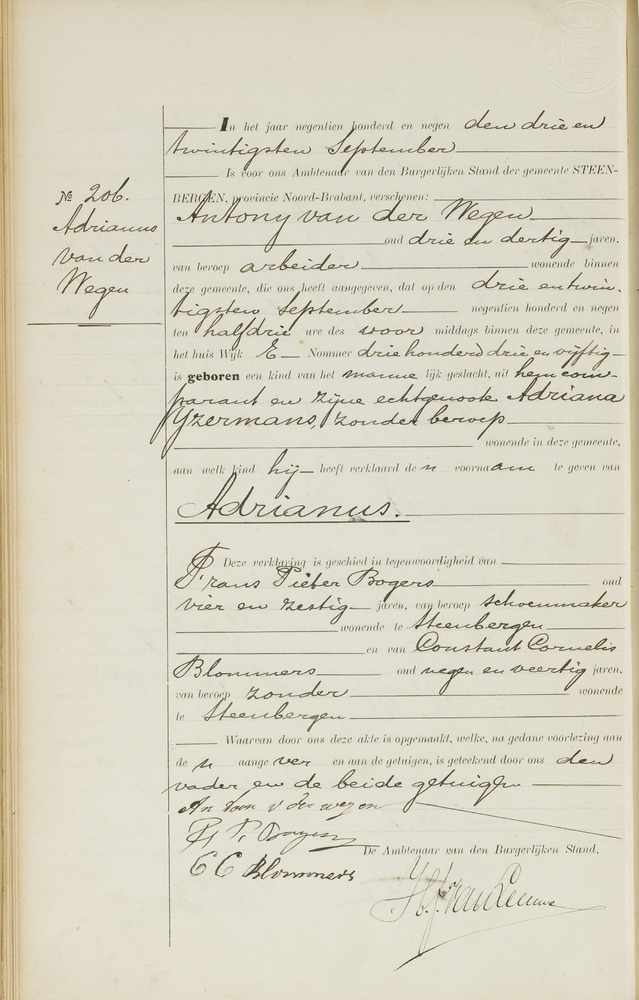 № 206.
Adrianus
van der
Wegen
In het jaar negentien honderd en negen den drie en
twintigsten September
Is voor ons Ambtenaar van den Burgerlijken Stand der gemeente STEEN-
BERGEN, provincie Noord-Brabant, verschenen:
Antony van der Wegen
oud drie en dertig jaren,
van beroep arbeider wonende binnen
deze gemeente, die ons heeft aangegeven, dat op den drie en twin-
tigsten September negentien honderd en negen
ten half drie ure des voor middags binnen deze gemeente, in
het huis Wijk E Nommer driehonderd drie en vijftig
is geboren een kind van het manne lijk geslacht, uit hem com-
parant en zijne echtgenoote Adriana
Yzermans, zonder beroep
wonende in deze gemeente,
aan welk kind hij heeft verklaard de n voornaam te geven van
Adrianus.
Deze verklaring is geschied in tegenwoordigheid van
Frans Pieter Bogers oud
vier en zestig jaren, van beroep schoenmaker
wonende te Steenbergen
en van Constant Cornelis
Blommers oud negen en veertig jaren,
van beroep zonder wonende
te Steenbergen
Waarvan door ons deze akte is opgemaakt, welke, na gedane voorlezing aan
de n aange ver en aan de getuigen, is geteekend door ons den
vader en de beide getuigen
An toon v der wegen
Fr P. Bogers
C C Blommers
De Ambtenaar van den Burgerlijken Stand,